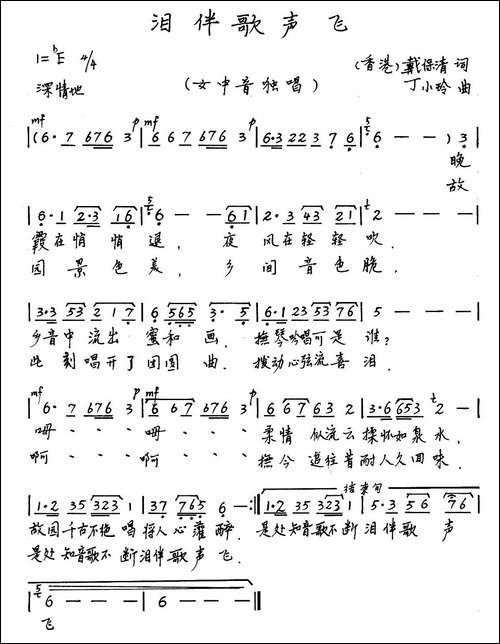 泪伴歌声飞
1=ᵇE 4/4 (香港)戴保清 词
深情地 (女中音独唱) 丁小玲 曲
mf p mf p
(6·7 6̲7̲6̲ 3 | 6 6 7 6̲7̲6̲ 3 | 6·3 2 2 3 7 6 | 6 — — ) 3
晚
故
6·1 2·3 1 6 | 6 — — 6 1 | 2·3 4 3 2 1 | 2 — —
霞在悄悄退，夜风在轻轻吹．
园景色美，乡间音色脆．
3·3 5 3 2 1 7 | 6 5 6 5 3· 5 | 6·1 2 3 5 3 7 6 | 5 — —
乡音中流出蜜和画．抚琴吟唱可是谁？
此刻唱开了团圆曲．拨动心弦流喜泪．
mf p mf p
6·7 ♭7 6 3 | 6 6 7 ♭7 6 3 | 6 6 7 6 3 2 | 3·6 6 5 3 2 —
呣、、、呣、、、柔情似流云揉怀如泉水，
啊、、、啊、、、抚今追往昔耐人久回味．
结束句
1·2 3 5 3 2 3 1 | 3 7 7 6 5 6 — :‖ 1·2 3 5 3 2 3 1 | 5·3 5 6 7 6
故园千古不艳唱得人心灌醉．是处知音歌不断泪伴歌声
是处知音歌不断泪伴歌声飞．
6 — — — | 6 — — — ‖
飞